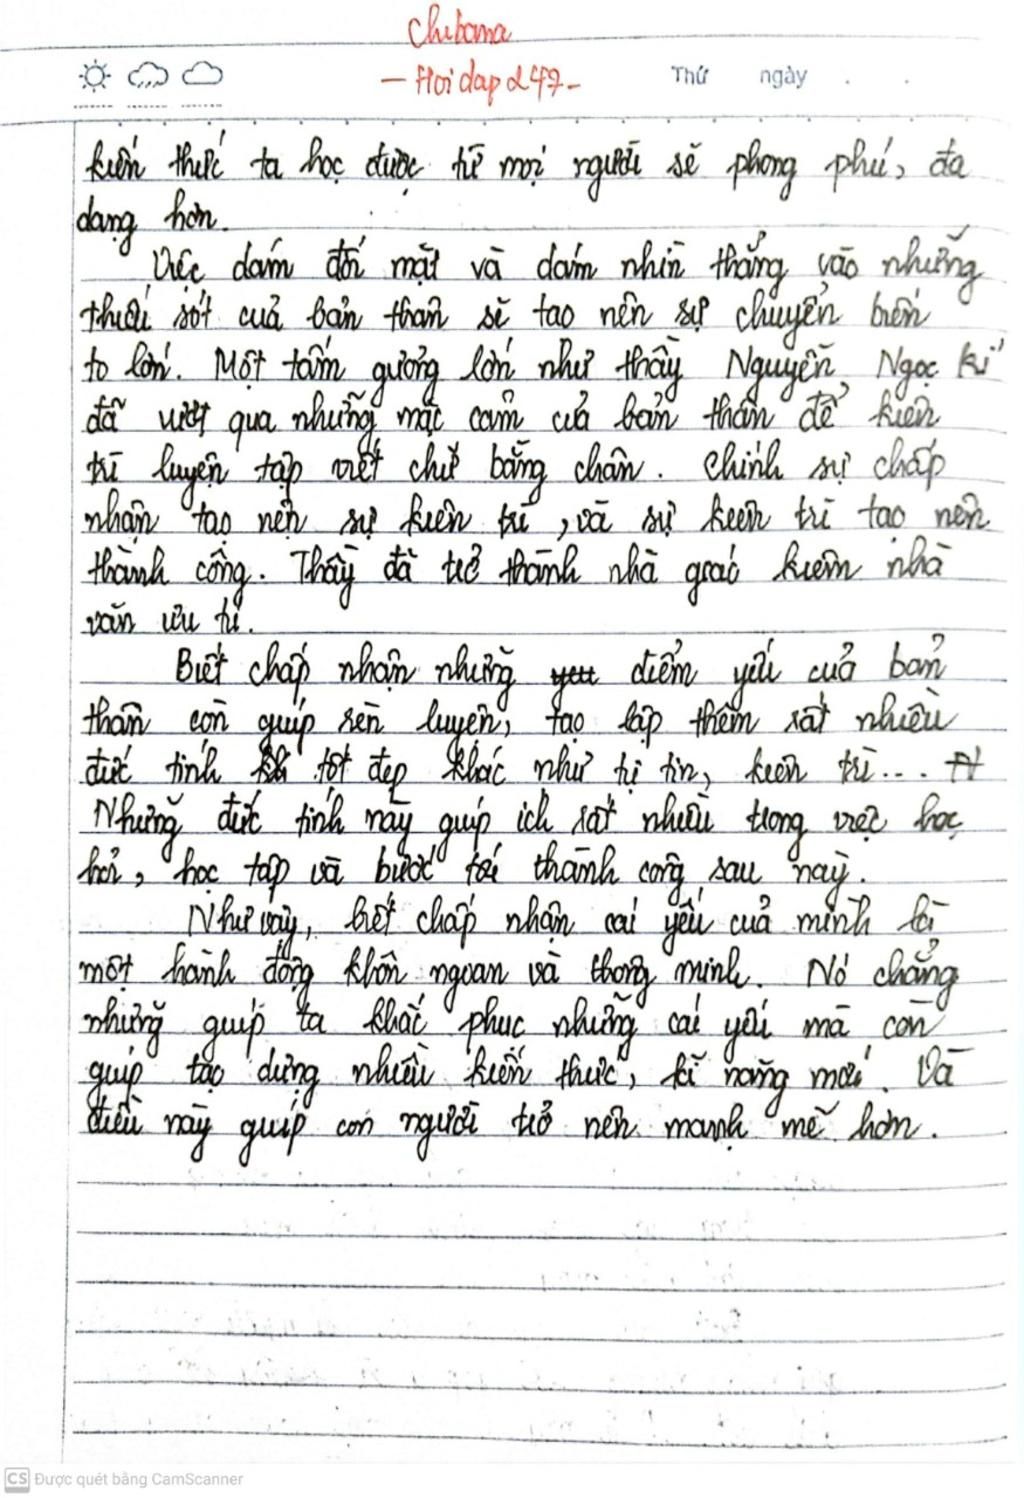 Chibama
- Hoidap247-
Thứ ngày . .
kiến thức ta học được từ mọi người sẽ phong phú, đa
dạng hơn.
Việc dám đối mặt và dám nhìn thẳng vào những
thiếu sót của bản thân sẽ tạo nên sự chuyển biến
to lớn. Một tấm gương lớn như thầy Nguyễn Ngọc Kí
đã vượt qua những mặc cảm của bản thân để kiên
trì luyện tập viết chữ bằng chân. Chính sự chấp
nhận tạo nên sự kiên trì, và sự kiên trì tạo nên
thành công. Thầy đã trở thành nhà giáo kiêm nhà
văn ưu tú.
Biết chấp nhận những điểm yếu của bản
thân còn giúp rèn luyện, tạo lập thêm rất nhiều
đức tính tốt đẹp khác như tự tin, kiên trì...
Những đức tính này giúp ích rất nhiều trong việc học
hỏi, học tập và bước tới thành công sau này.
Như vậy, biết chấp nhận cái yếu của mình là
một hành động khôn ngoan và thông minh. Nó chẳng
những giúp ta khắc phục những cái yếu mà còn
giúp tạo dựng nhiều kiến thức, kĩ năng mới. Và
điều này giúp con người trở nên mạnh mẽ hơn.
CS Được quét bằng CamScanner